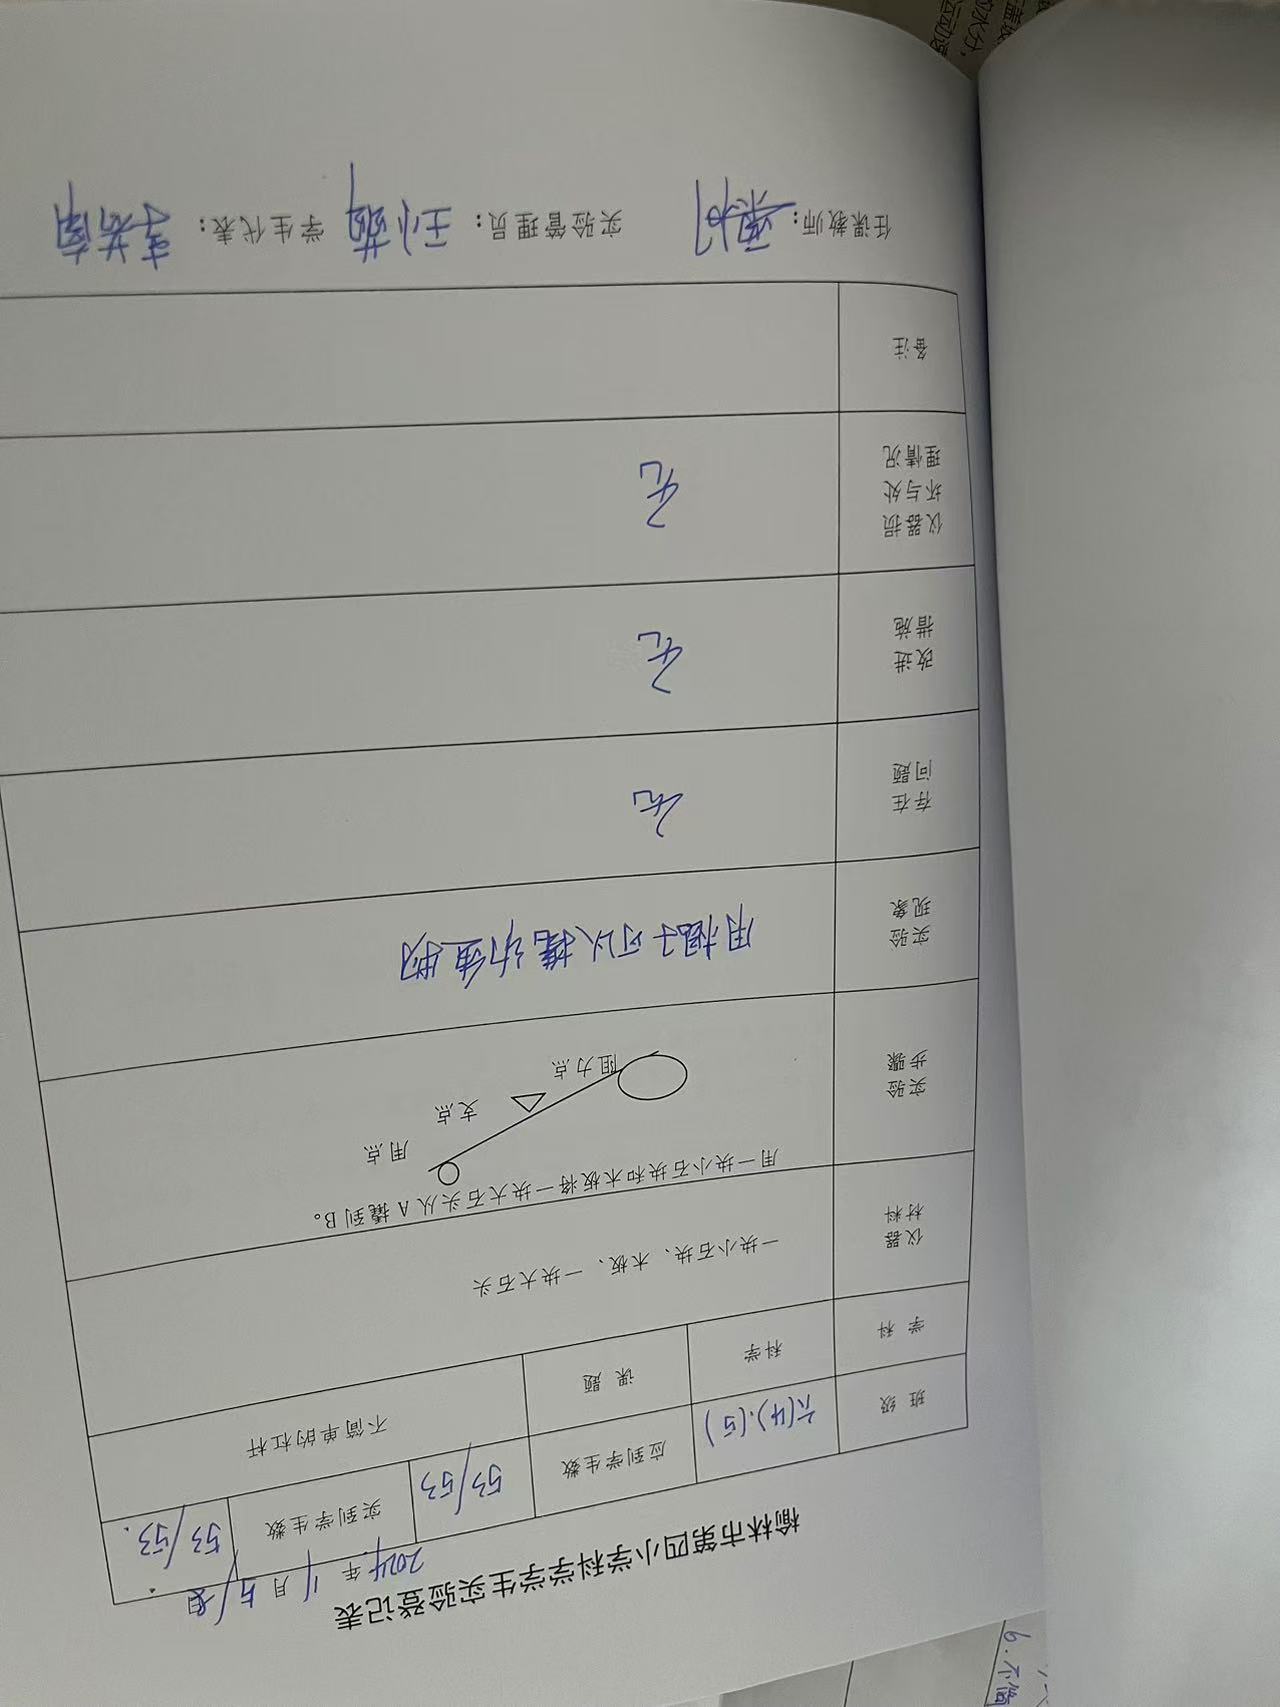 榆林市第四小学科学学生实验登记表
2024年 11月 5/6日
班 级 六(4).(5) 应到学生数 53/53 实到学生数 53/53.
学 科 科学 课 题 不简单的杠杆
仪器
材料
一块小石块、木板、一块大石头
实验
步骤
用一块小石块和木板将一块大石头从 A 撬到 B。
用点
支点
阻力点
实验
现象
用棍子可以撬动重物
存在
问题
无
改进
措施
无
仪器损
坏与处
理情况
无
备注
任课教师: 实验管理员: 王小 学生代表:
6.不简